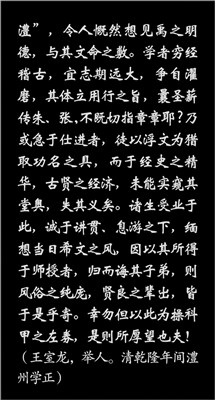 澧”，令人慨然想见禹之明
德，与其文命之敷。学者穷经
稽古，宜志期远大，争自濯
磨，其体立用行之旨，曩圣薪
传朱、张，不既切指章章耶？乃
或急于仕进者，徒以浮文为猎
取功名之具，而于经史之精
华，古贤之经济，未能实窥其
堂奥，失其义矣。诸生受业于
此，诚于讲贯、息游之下，缅
想当日希文之风，因以其所得
于师授者，归而诲其子弟，则
风俗之纯庞，贤良之辈出，皆
于是乎寄。幸勿但以此为操科
甲之左券，是则所厚望也夫！
（王室龙，举人。清乾隆年间澧
州学正）